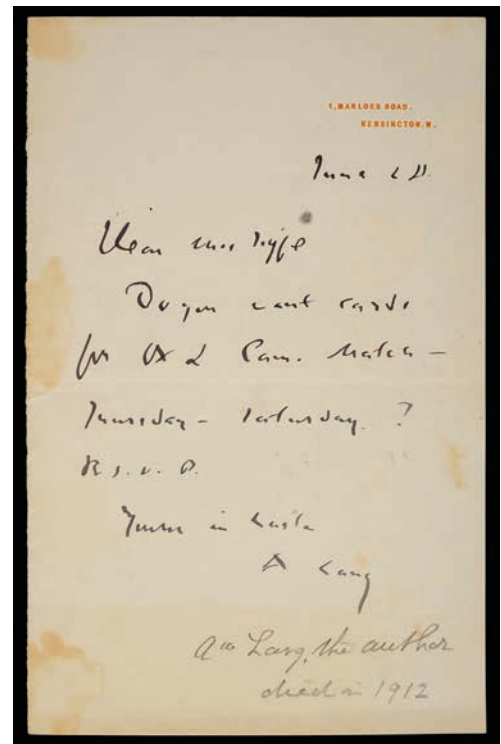 1, MARLOES ROAD.
KENSINGTON. W.
June
Dear
Do you want cards
for Ox & Cam. Match –
Thursday – Saturday. ?
R.S.V.P.
Yours in haste
A Lang
Lang, the author
died in 1912